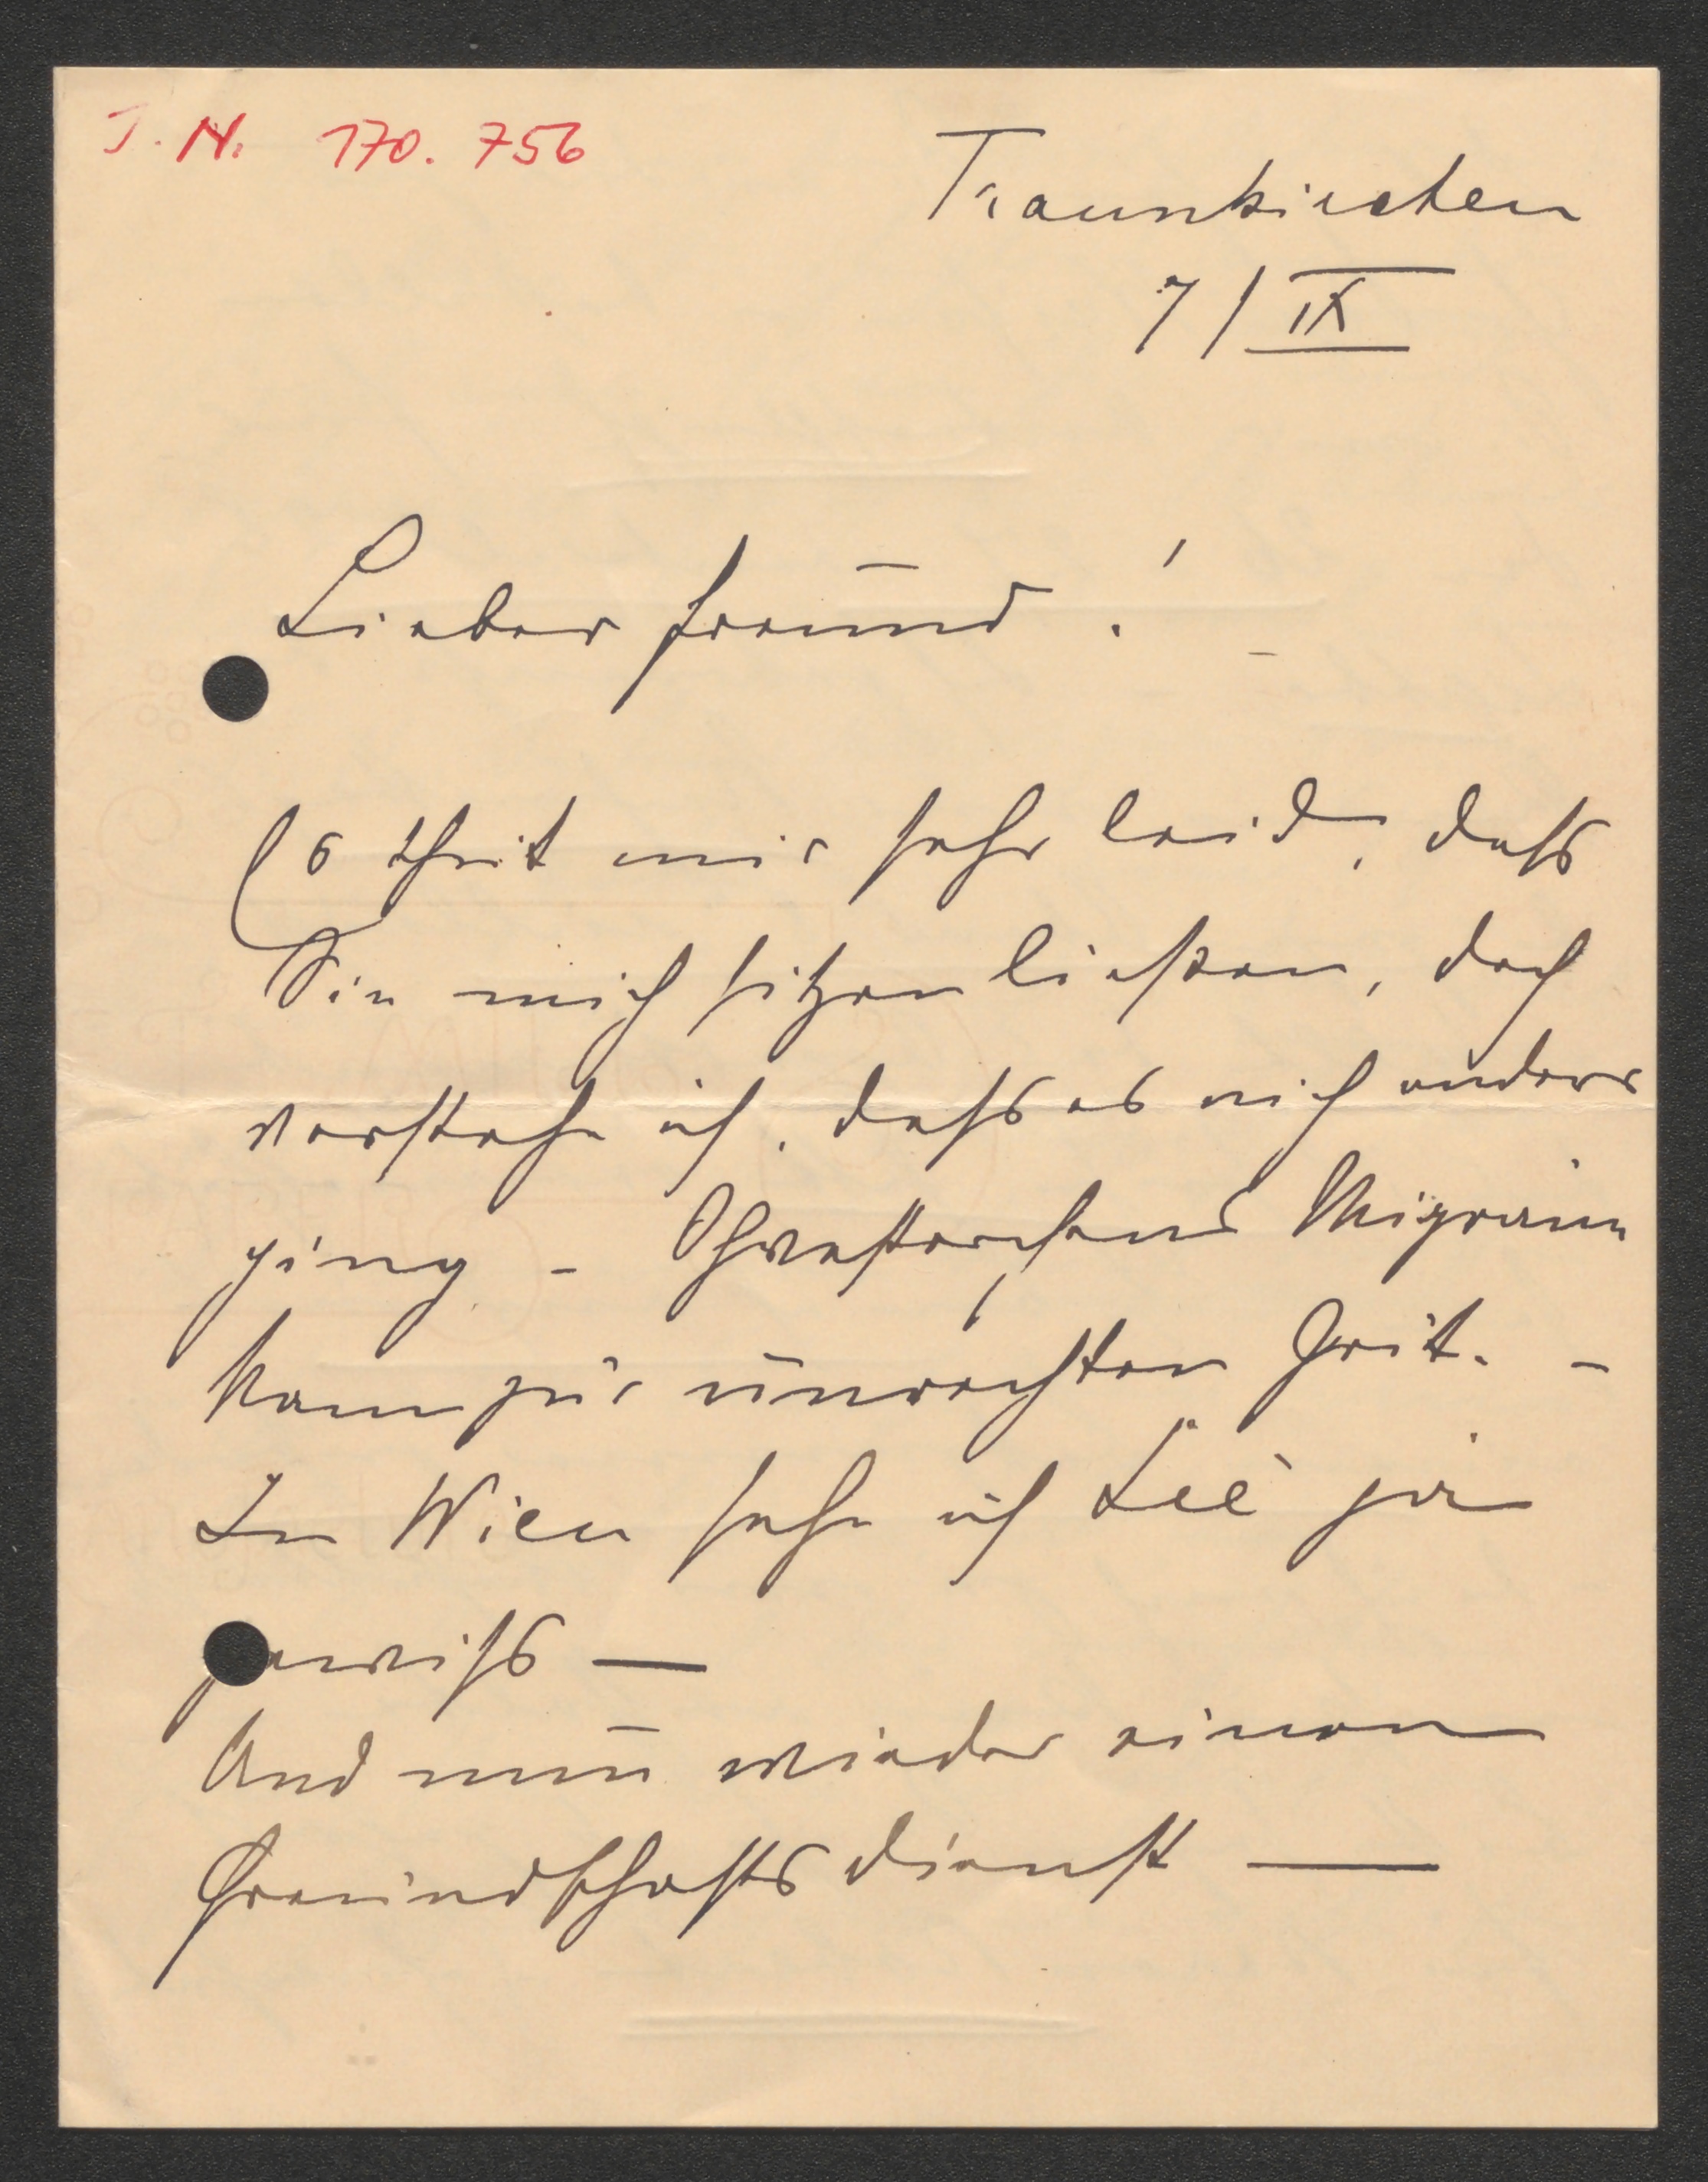 J. N. 170.756
Traunkirchen
7/IX
Lieber Freund! –
Es thut mir sehr leid, dass
Sie mich sitzen ließen, doch
verstehe ich, dass es nich anders
ging – Schwesterchens Migraine
kam zur unrechten Zeit. –
In Wien sehe ich ja
gewiss —
Und nun wieder einen
Freundschaftsdienst —